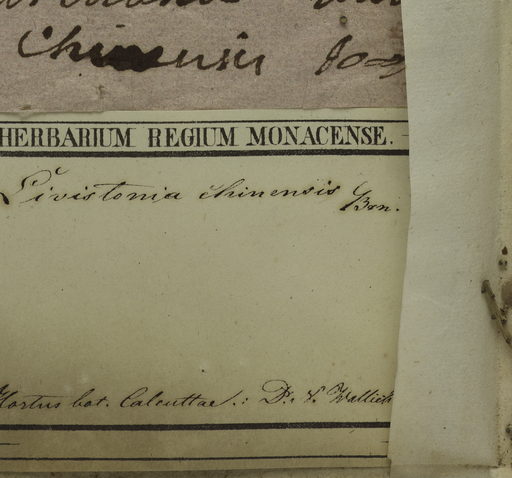 Chinensis
HERBARIUM REGIUM MONACENSE.
Livistonia chinensis Brn.
Hortus bot. Calcuttae.: Dr. N. Wallich